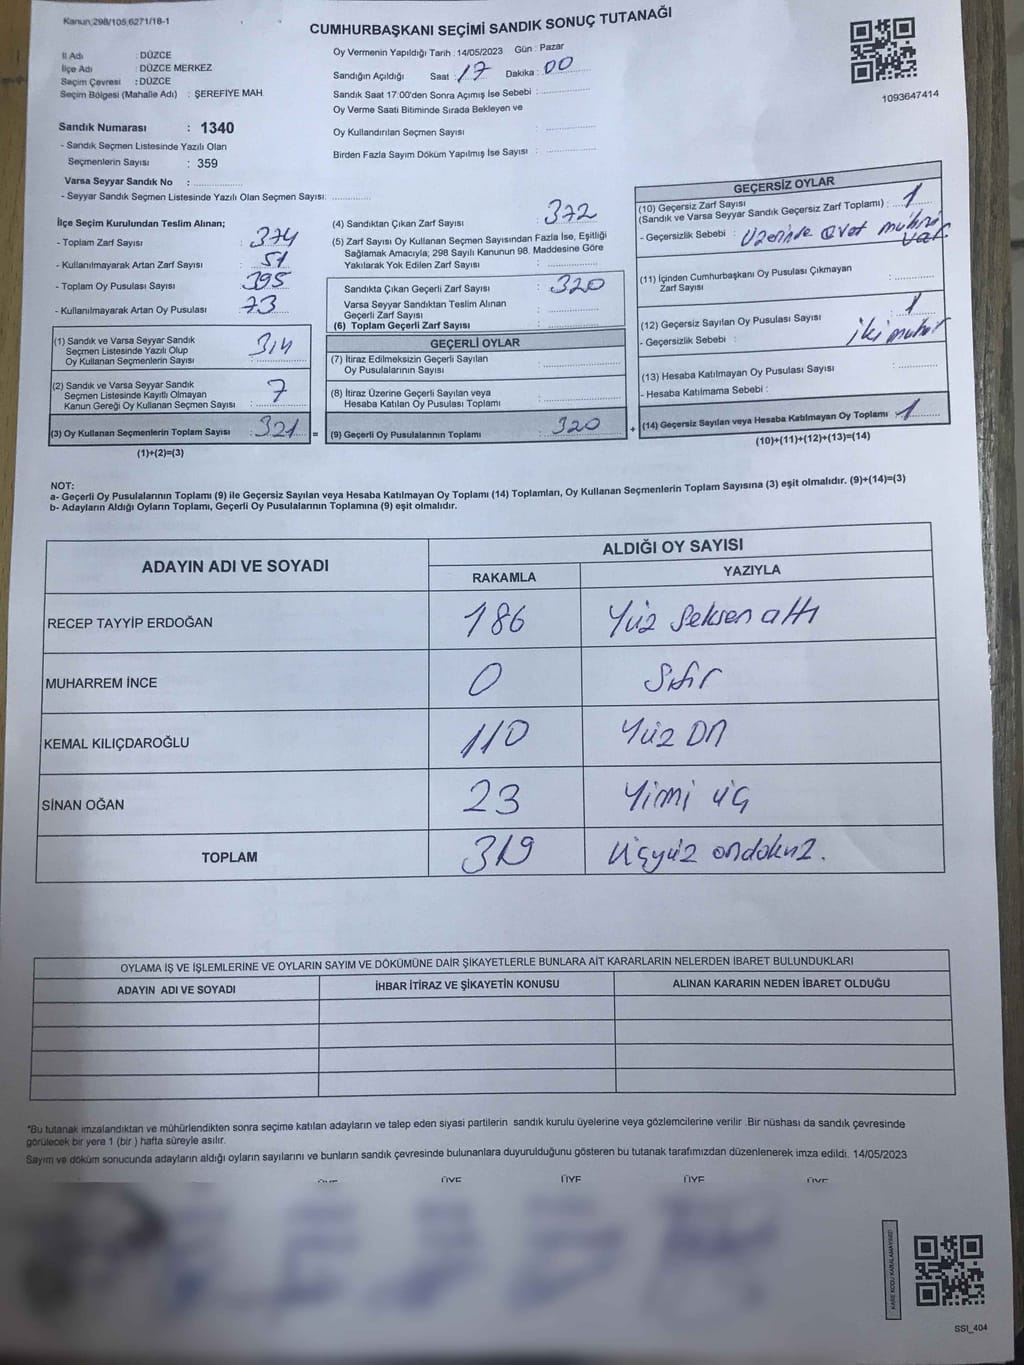 Kanun;298/105,6271/18-1
CUMHURBAŞKANI SEÇİMİ SANDIK SONUÇ TUTANAĞI
İl Adı : DÜZCE
İlçe Adı : DÜZCE MERKEZ
Seçim Çevresi : DÜZCE
Seçim Bölgesi (Mahalle Adı) : ŞEREFİYE MAH.
Oy Vermenin Yapıldığı Tarih : 14/05/2023 Gün : Pazar
Sandığın Açıldığı Saat : 17 Dakika : 00
Sandık Saat 17:00'den Sonra Açımış İse Sebebi :
Oy Verme Saati Bitiminde Sırada Bekleyen ve
Oy Kullandırılan Seçmen Sayısı :
Birden Fazla Sayım Döküm Yapılmış İse Sayısı :
1093647414
Sandık Numarası : 1340
- Sandık Seçmen Listesinde Yazılı Olan
Seçmenlerin Sayısı : 359
Varsa Seyyar Sandık No :
- Seyyar Sandık Seçmen Listesinde Yazılı Olan Seçmen Sayısı:
İlçe Seçim Kurulundan Teslim Alınan;
- Toplam Zarf Sayısı : 374
- Kullanılmayarak Artan Zarf Sayısı : 51
- Toplam Oy Pusulası Sayısı : 395
- Kullanılmayarak Artan Oy Pusulası : 73
(1) Sandık ve Varsa Seyyar Sandık
Seçmen Listesinde Yazılı Olup
Oy Kullanan Seçmenlerin Sayısı : 314
(2) Sandık ve Varsa Seyyar Sandık
Seçmen Listesinde Kayıtlı Olmayan
Kanun Gereği Oy Kullanan Seçmen Sayısı : 7
(3) Oy Kullanan Seçmenlerin Toplam Sayısı : 321 =
(1)+(2)=(3)
(4) Sandıktan Çıkan Zarf Sayısı : 372
(5) Zarf Sayısı Oy Kullanan Seçmen Sayısından Fazla İse, Eşitliği
Sağlamak Amacıyla; 298 Sayılı Kanunun 98. Maddesine Göre
Yakılarak Yok Edilen Zarf Sayısı :
Sandıkta Çıkan Geçerli Zarf Sayısı : 320
Varsa Seyyar Sandıktan Teslim Alınan
Geçerli Zarf Sayısı :
(6) Toplam Geçerli Zarf Sayısı :
GEÇERLİ OYLAR
(7) İtiraz Edilmeksizin Geçerli Sayılan
Oy Pusulalarının Sayısı :
(8) İtiraz Üzerine Geçerli Sayılan veya
Hesaba Katılan Oy Pusulası Toplamı :
(9) Geçerli Oy Pusulalarının Toplamı : 320 +
GEÇERSİZ OYLAR
(10) Geçersiz Zarf Sayısı
(Sandık ve Varsa Seyyar Sandık Geçersiz Zarf Toplamı) : 1
- Geçersizlik Sebebi : Üzerinde evet mührü
var
(11) İçinden Cumhurbaşkanı Oy Pusulası Çıkmayan
Zarf Sayısı :
(12) Geçersiz Sayılan Oy Pusulası Sayısı : 1
- Geçersizlik Sebebi : iki
(13) Hesaba Katılmayan Oy Pusulası Sayısı :
- Hesaba Katılmama Sebebi :
(14) Geçersiz Sayılan veya Hesaba Katılmayan Oy Toplamı : 1
(10)+(11)+(12)+(13)=(14)
NOT:
a- Geçerli Oy Pusulalarının Toplamı (9) ile Geçersiz Sayılan veya Hesaba Katılmayan Oy Toplamı (14) Toplamları, Oy Kullanan Seçmenlerin Toplam Sayısına (3) eşit olmalıdır. (9)+(14)=(3)
b- Adayların Aldığı Oyların Toplamı, Geçerli Oy Pusulalarının Toplamına (9) eşit olmalıdır.
ADAYIN ADI VE SOYADI
ALDIĞI OY SAYISI
RAKAMLA YAZIYLA
RECEP TAYYİP ERDOĞAN 186 Yüz Seksen altı
MUHARREM İNCE 0 Sıfır
KEMAL KILIÇDAROĞLU 110 Yüz ON
SİNAN OĞAN 23 Yirmi üç
TOPLAM 319 Üçyüz ondokuz.
OYLAMA İŞ VE İŞLEMLERİNE VE OYLARIN SAYIM VE DÖKÜMÜNE DAİR ŞİKAYETLERLE BUNLARA AİT KARARLARIN NELERDEN İBARET BULUNDUKLARI
ADAYIN ADI VE SOYADI İHBAR İTİRAZ VE ŞİKAYETİN KONUSU ALINAN KARARIN NEDEN İBARET OLDUĞU
*Bu tutanak imzalandıktan ve mühürlendikten sonra seçime katılan adayların ve talep eden siyasi partilerin sandık kurulu üyelerine veya gözlemcilerine verilir .Bir nüshası da sandık çevresinde
görülecek bir yere 1 (bir ) hafta süreyle asılır.
Sayım ve döküm sonucunda adayların aldığı oyların sayılarını ve bunların sandık çevresinde bulunanlara duyurulduğunu gösteren bu tutanak tarafımızdan düzenlenerek imza edildi. 14/05/2023
ÜYE ÜYE ÜYE ÜYE
KARE KODU KARALAMAYINIZ!
SSI_404